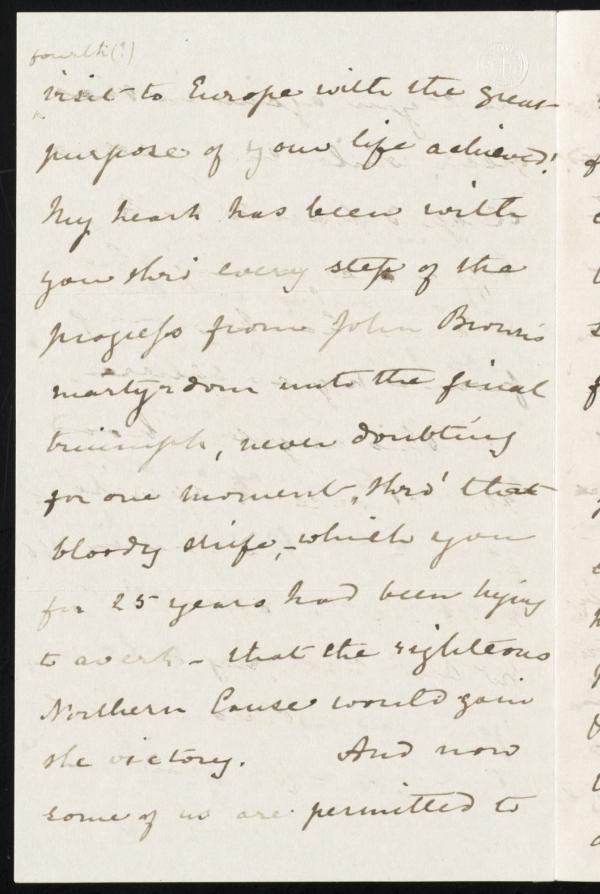 fourth(?)
visit to Europe with the great
purpose of your life achieved!
My heart has been with
you thro' every step of the
progress from John Brown's
martyrdom unto the final
triumph, never doubting
for one moment, thro' that
bloody strife, - which you
for 25 years had been trying
to avert - that the righteous
Northern Cause would gain
the victory. And now
some of us are permitted to